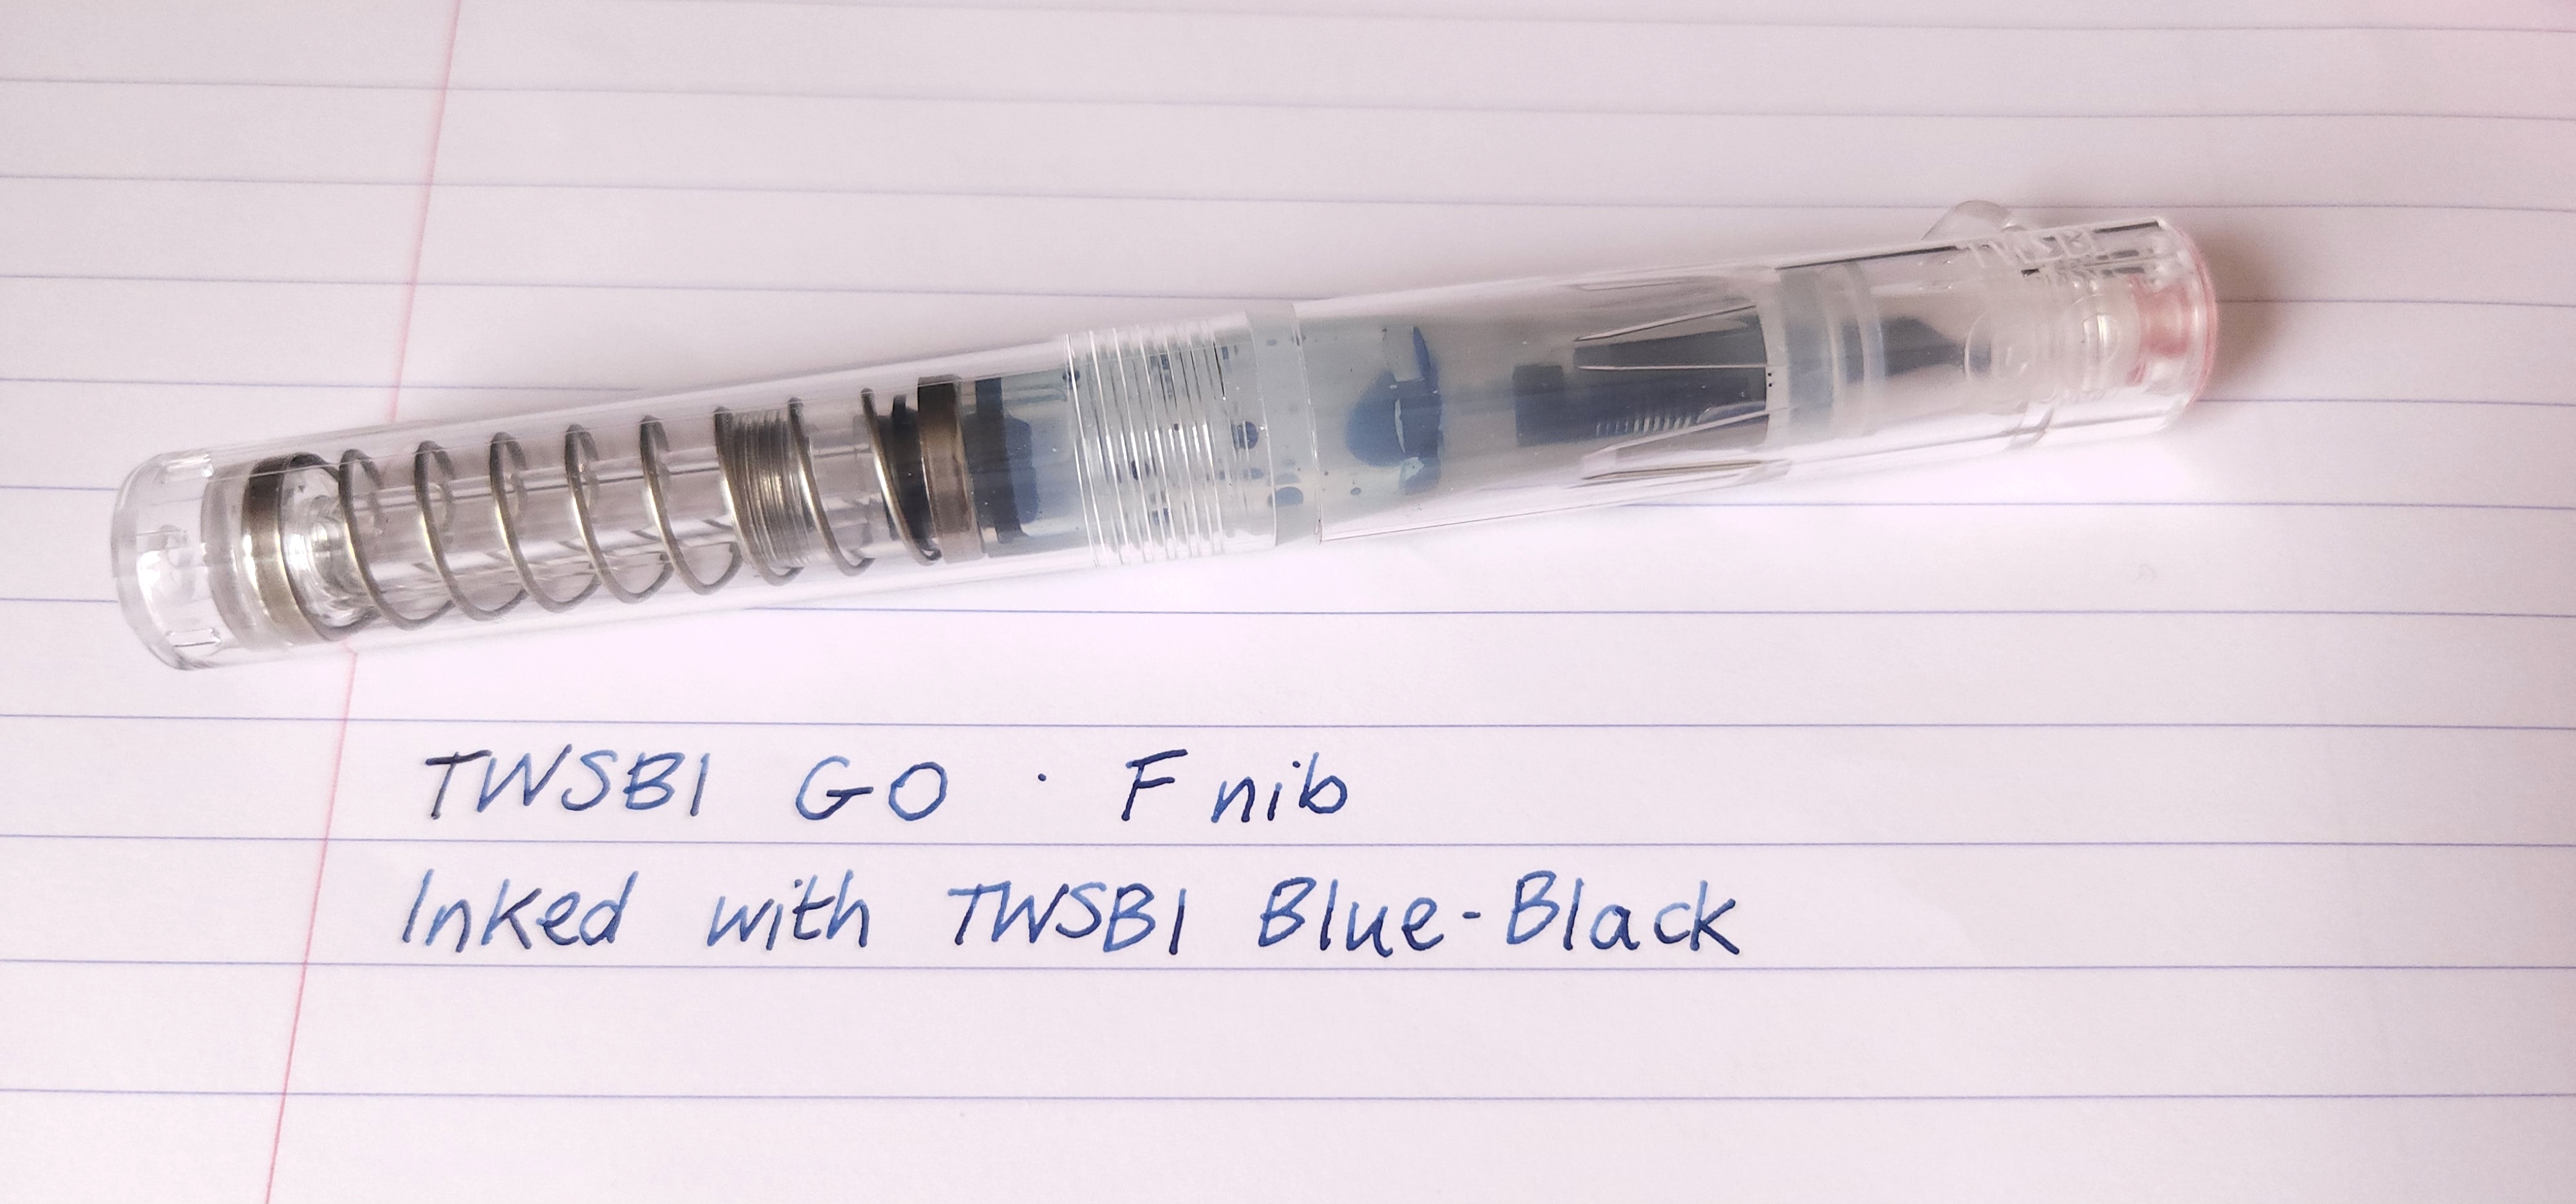 TWSBI
TWSBI GO · F nib
Inked with TWSBI Blue-Black